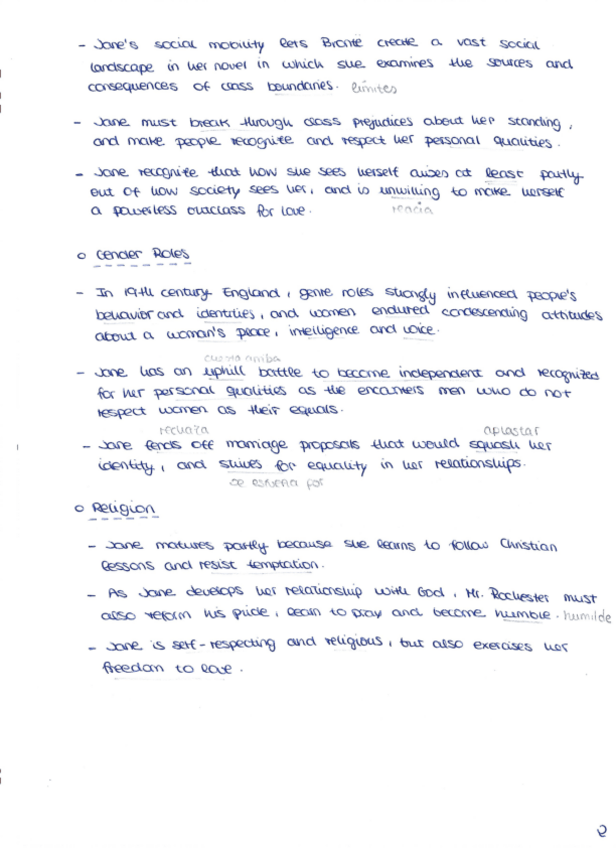 - Jane's social mobility lets Brontë create a vast social
landscape in her novel in which she examines the sources and
consequences of class boundaries. límites
- Jane must break through class prejudices about her standing,
and make people recognize and respect her personal qualities.
- Jane recognize that how she sees herself arises at least partly
out of how society sees her, and is unwilling to make herself
a powerless outclass for love. reacia
o Gender Roles
- In 19th century England, genre roles strongly influenced people's
behavior and identities, and women endured condescending attitudes
about a woman's place, intelligence and voice.
cuesta arriba
- Jane has an uphill battle to become independent and recognized
for her personal qualities as the encounters men who do not
respect women as their equals.
rechaza aplastar
- Jane fends off marriage proposals that would squash her
identity, and strives for equality in her relationships.
se esfuerza for
o Religion
- Jane matures partly because she learns to follow Christian
lessons and resist temptation.
- As Jane develops her relationship with God, Mr. Rochester must
also reform his pride, learn to pray and become humble. humilde
- Jane is self-respecting and religious, but also exercises her
freedom to love.
2